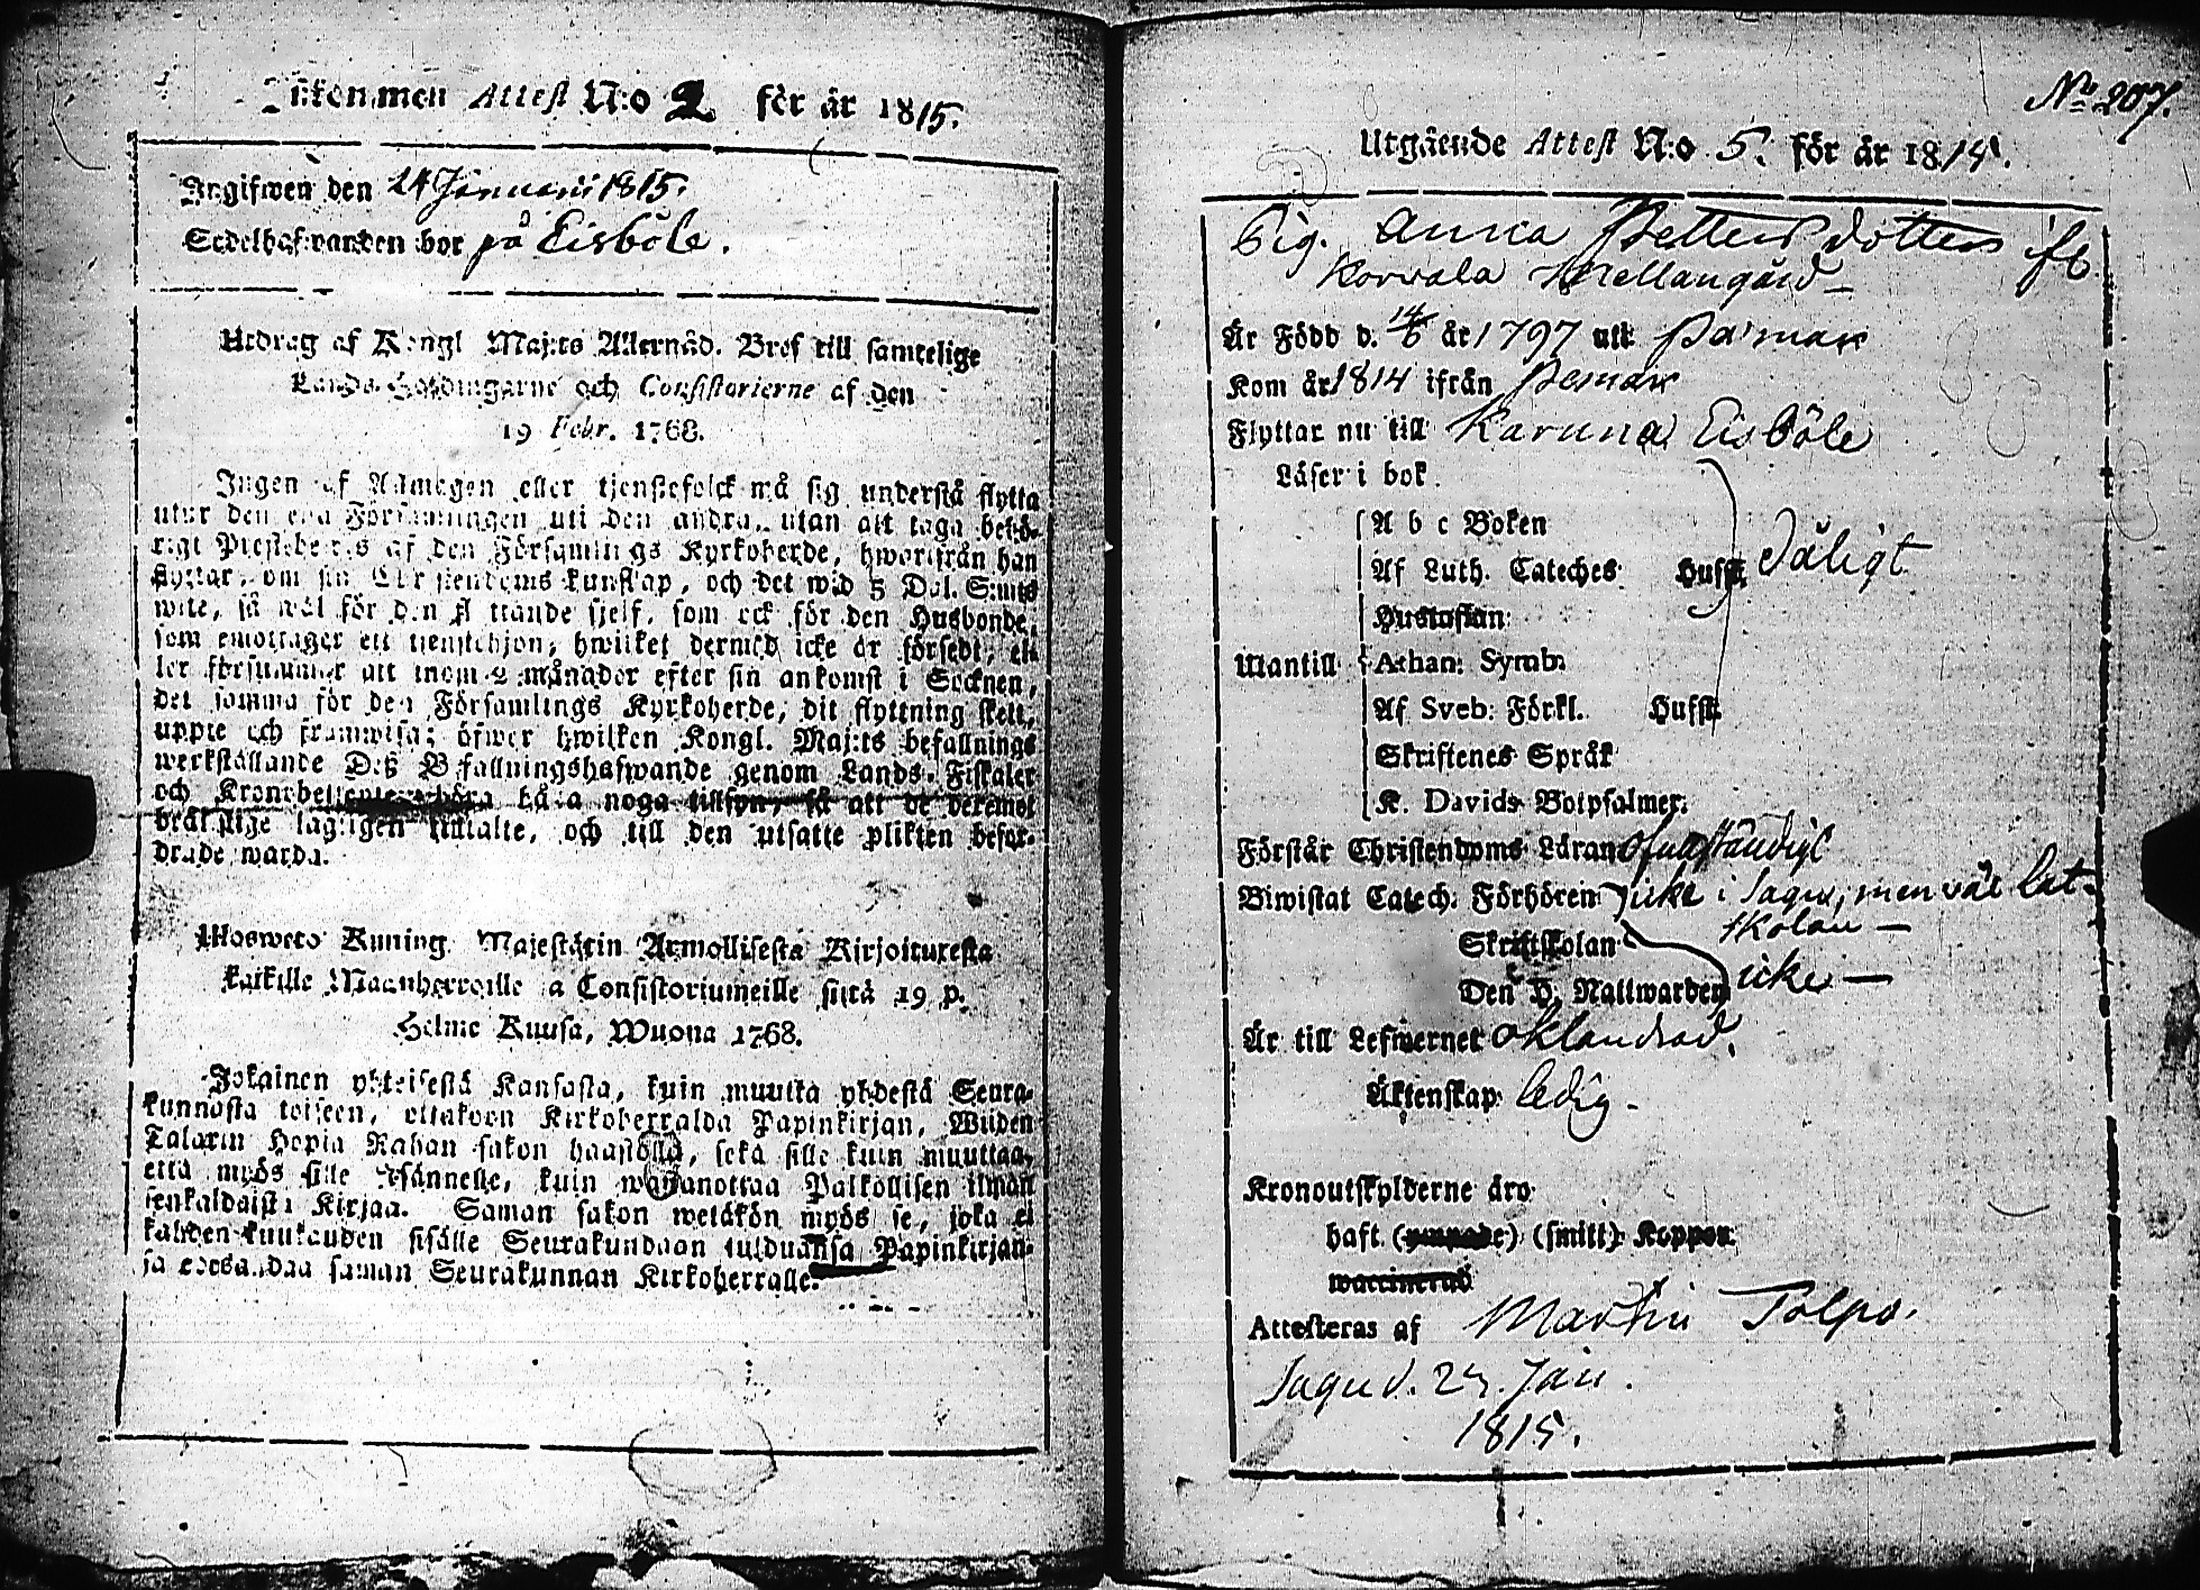 Inkommen Attest N:o 2 för år 1815.
Ingifwen den 24 Januarii 1815.
Sedelhafwanden bor på Eisböle.
Utdrag af Kongl Maj:ts Allernåd. Bref till samtelige
Lands-Höfdingarne och Consistorierne af den
19 Febr. 1768.
Ingen af Allmogen eller tjenstefolck må sig understå flytta
utur den ena Församlingen uti den andra, utan att taga behö-
rigt Prestebewis af den Församlings Kyrkoherde, hwarifrån han
flyttar, om sin Christendoms kunskap, och det wid 5 Dal. S:mts
wite, så wäl för den flyttande sjelf, som ock för den Husbonde,
som emottager ett tienstehjon, hwilket dermed icke är försedt, el-
ler försummar att inom 2 månader efter sin ankomst i Socknen,
det samma för den Församlings Kyrkoherde, dit flyttning skett,
uppte och framwisa; öfwer hwilken Kongl. Maj:ts befallnings
werkställande Deß Befallningshafwande genom Lands-Fiskaler
och Kronobetjente böra hafwa noga tillsyn, så att de deremot
bråtslige lagligen tilltalte, och till den utsatte plikten befor-
drade warda.
Ulosweto Kuning. Majestätin Armollisesta Kirjoituxesta
kaikille Maanherroille ja Consistoriumeille siitä 19 p.
Helme Kuusa, Wuona 1768.
Jokainen yhteisestä Kansasta, kuin muutta yhdestä Seura-
kunnasta toiseen, ottakoon Kirkoherralda Papinkirjan, Wiiden
Talarin Hopia Rahan sakon haastolla, sekä sille kuin muuttaa,
että myös sille Isännelle, kuin wastanottaa Palkollisen ilman
senkaldaista Kirjaa. Saman sakon wetäkön myös se, joka ei
kahden kuukauden sisälle Seurakundaan tulduansa Papinkirjan-
sa edesandaa saman Seurakunnan Kirkoherralle.
No 207.
Utgående Attest N:o 5. för år 1814.
Pig. Anna Petters dotter fr.
Korvala Mellangård
Är Född d. 14/6 år 1797 uti Pämar
Kom år 1814 ifrån Pemar
Flyttar nu till Karuna Eisböle
Läser i bok.
A b c Boken
Af Luth. Cateches Hufst. Dåligt
Hustaflan
Utantill Athan: Symb:
Af Sveb: Förkl. Hufst.
Skriftenes Språk
K. Davids Botpsalmer.
Förstår Christendoms Läran ofullständigt
Biwistat Catech. Förhören icke i Sagu, men väl läs-
Skriftskolan skolan
Den H. Nattwarden icke
Är till Lefwernet oklandrad.
Äktenskap ledig.
Kronoutskylderne äro
haft (ympade) (smitt) Koppor
waccinerad
Attesteras af Martin Tolpo.
Sagu d. 24. Jan.
1815.